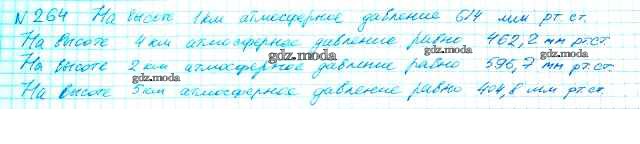 №264 На высоте 1км атмосферное давление 674 мм рт.ст.
На высоте 4 км атмосферное давление равно 462,2 мм рт.ст.
gdz.moda gdz.moda
На высоте 2 км атмосферное давление равно 596,7 мм рт.ст.
gdz.moda gdz.moda
На высоте 5км атмосферное давление равно 404,8 мм рт.ст.